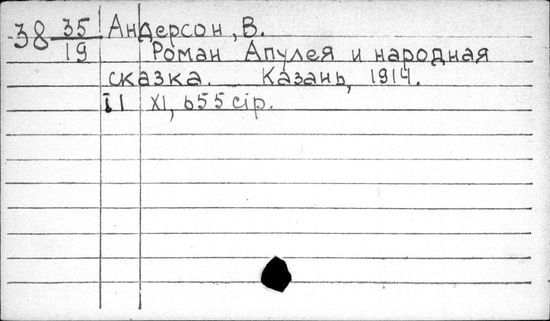 38 35/19 Андерсон, В.
Роман Апулея и народная
сказка. Казань, 1914.
II XI, 655 стр.